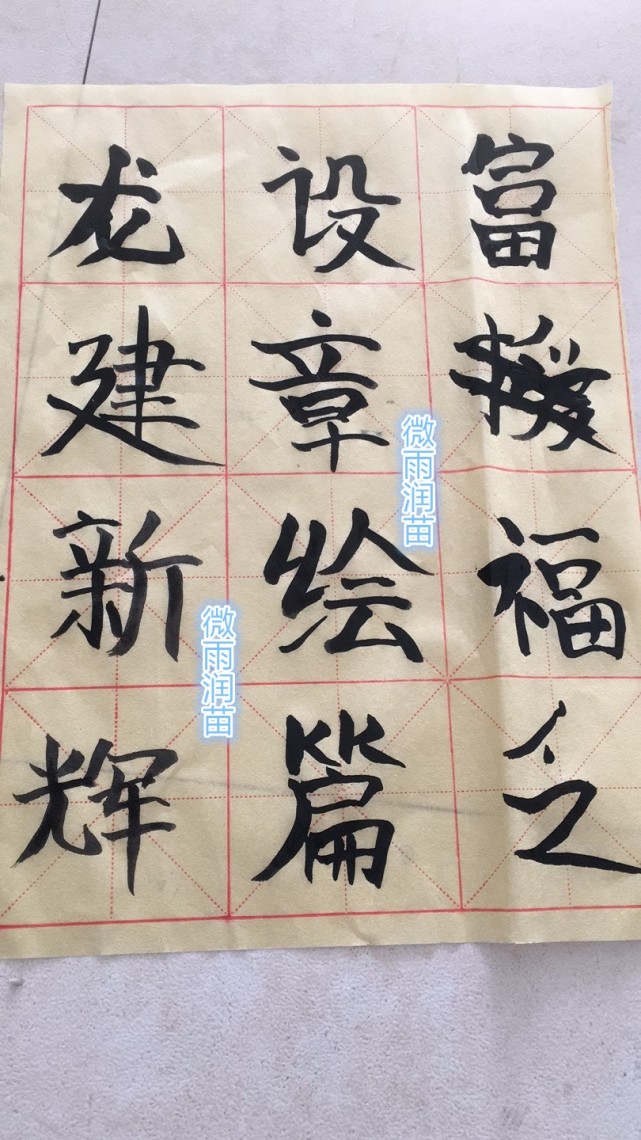 富福之
设章绘篇
龙建新辉
微雨润苗
微雨润苗